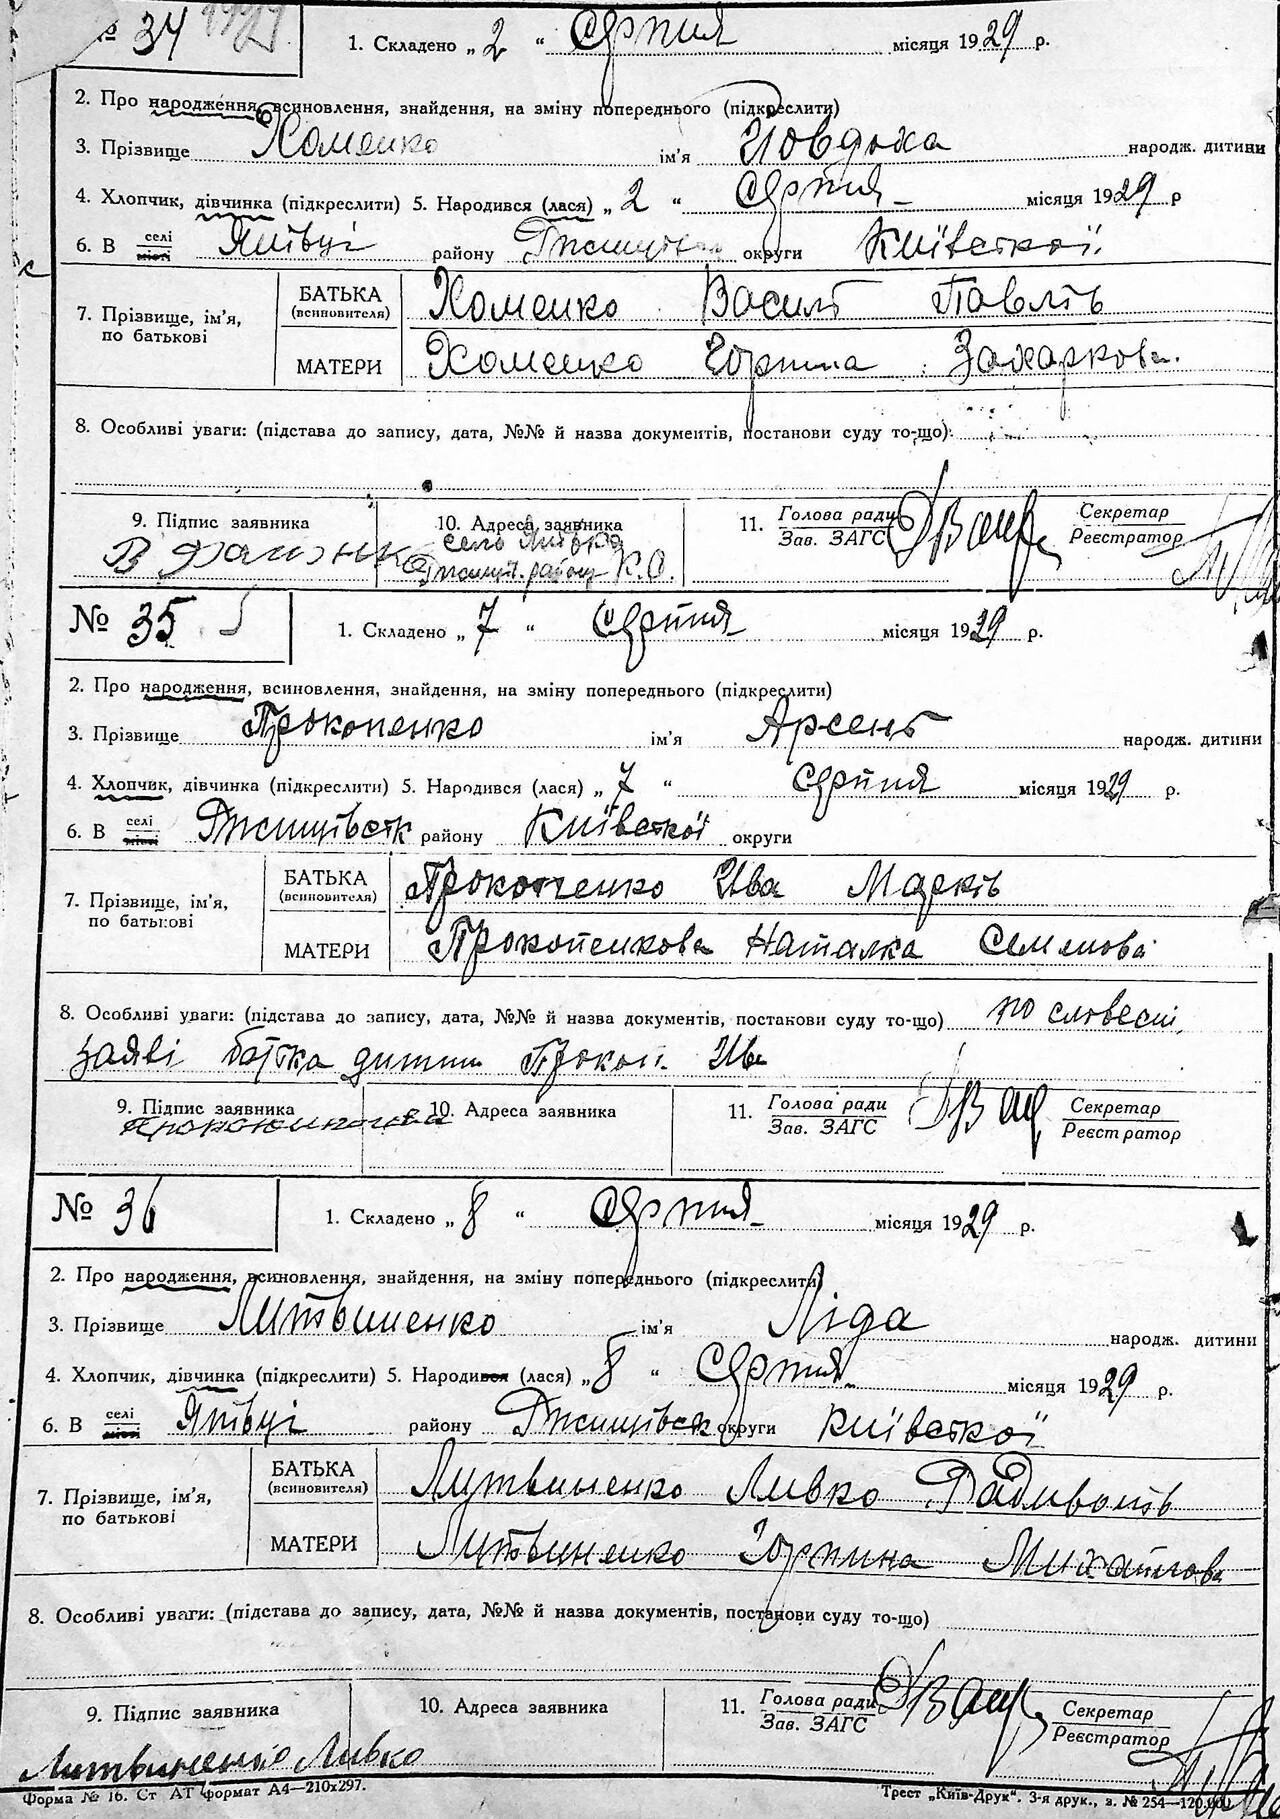 № 34 1929
1. Складено „ 2 “ Серпня місяця 1929 р.
2. Про народження, всиновлення, знайдення, на зміну попереднього (підкреслити)
3. Прізвище Хоменко ім'я Иовдоха народж. дитини
4. Хлопчик, дівчинка (підкреслити) 5. Народився (лася) „ 2 “ Серпня місяця 1929 р
6. В селі місті Янівці району округи Київської
7. Прізвище, ім'я, по батькові БАТЬКА (всиновителя) Хоменко Василь Павлів
МАТЕРИ Хоменко Горпина Захаркова
8. Особливі уваги: (підстава до запису, дата, №№ й назва документів, постанови суду то-що)
9. Підпис заявника 10. Адреса заявника 11. Голова ради Зав. ЗАГС Секретар Реєстратор
село Янівка
район К.О.
№ 35
1. Складено „ 7 “ Серпня місяця 1929 р.
2. Про народження, всиновлення, знайдення, на зміну попереднього (підкреслити)
3. Прізвище Прокопенко ім'я Арсень народж. дитини
4. Хлопчик, дівчинка (підкреслити) 5. Народився (лася) „ 7 “ серпня місяця 1929 р.
6. В селі місті Ржищівськ району Київської округи
7. Прізвище, ім'я, по батькові БАТЬКА (всиновителя) Прокопенко Ива Марків
МАТЕРИ Прокопенкова Наталка Семенова
8. Особливі уваги: (підстава до запису, дата, №№ й назва документів, постанови суду то-що) по словесн.
заяві батька дитини Прокоп. Ив
9. Підпис заявника 10. Адреса заявника 11. Голова ради Зав. ЗАГС Секретар Реєстратор
№ 36
1. Складено „ 8 “ Серпня місяця 1929 р.
2. Про народження, всиновлення, знайдення, на зміну попереднього (підкреслити)
3. Прізвище Литвиненко ім'я Ліда народж. дитини
4. Хлопчик, дівчинка (підкреслити) 5. Народився (лася) „ 8 “ Серпня місяця 1929 р.
6. В селі місті Янівці району Ржищівськ округи Київської
7. Прізвище, ім'я, по батькові БАТЬКА (всиновителя) Литвиненко Ливко Радивонів
МАТЕРИ Литвиненко Горпина Михайлова
8. Особливі уваги: (підстава до запису, дата, №№ й назва документів, постанови суду то-що)
9. Підпис заявника 10. Адреса заявника 11. Голова ради Зав. ЗАГС Секретар Реєстратор
Литвиненко Ливко
Форма № 16. Ст АТ формат А4—210х297. Трест „Київ-Друк“. 3-я друк., з. № 254—120.000